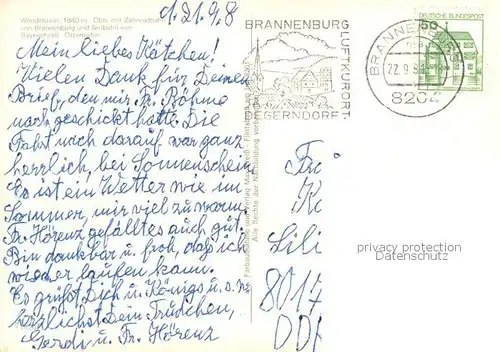 Wendelstein, 1840 m - Obb. mit Zahnradbahn
von Brannenburg und Seilbahn von
Bayrischzell - Osterhofen
d. 21.9.8
Mein liebes Kätchen!
Vielen Dank für Deinen
Brief, den mir Fr. Böhme
nachgeschickt hatte. Die
Fahrt nach darauf war ganz
herrlich, bei Sonnenschein
Es ist ein Wetter wie im
Sommer, mir viel zu warm
Fr. Hörenz gefällt es auch gut.
Bin dankbar u. froh, daß ich
wieder laufen kann.
Es grüßt Dich u. Königs u. s. w.
herzlichst Dein Trudchen,
Gerdi u. Fr. Hörenz
Alle Rechte der Nachbildung vorbehalten
BRANNENBURG
LUFTKURORT
DEGERNDORF
BRANNENBURG
22.9.8
8204
50
DEUTSCHE BUNDESPOST
Fr
K
Lili
8014
DD
privacy protection
Datenschutz